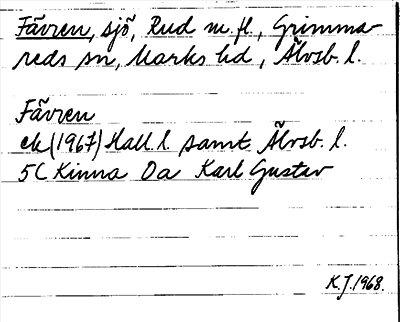 Fävren, sjö, Rud m.fl., Grimma-
reds sn, Marks hd, Älvsb. l.
Fävren
ek (1967) Hall. l. samt Älvsb. l.
5C Kinna 0a Karl Gustav
K.J. 1968.